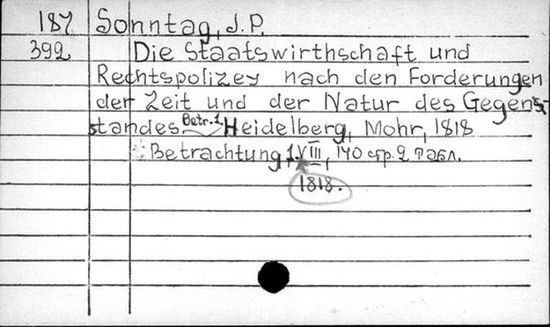 187 Sonntag, J. P.
392 Die Staatswirthschaft und
Rechtspolizey nach den Forderungen
der Zeit und der Natur des Gegen-
standes. Betr. 1. Heidelberg, Mohr, 1818
Betrachtung 1. VIII, 140 стр. 2 табл.
1818.